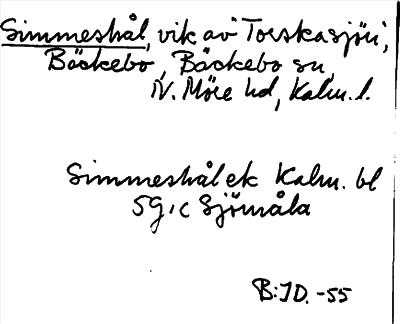 Simmeshål, vik av Torskasjön,
Bäckebo, Bäckebo sn,
N. Möre hd, Kalm. l.
Simmeshål ek Kalm. bl
5G, c Sjömåla
B:JD. -55